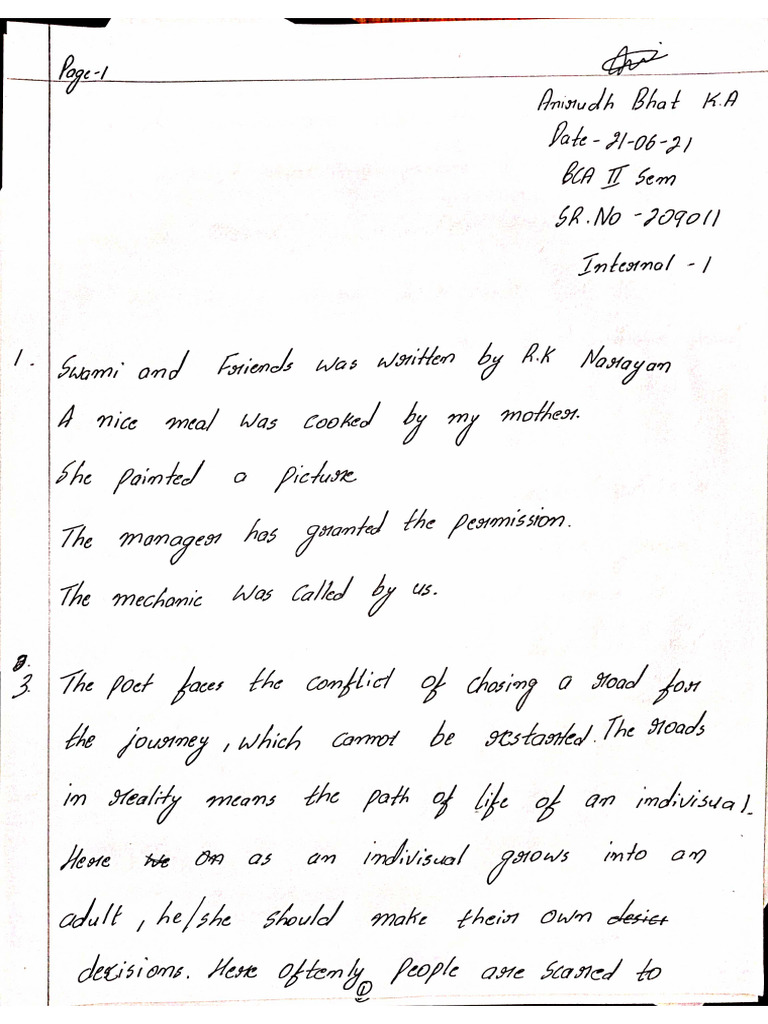 Page-1
Anirudh Bhat K.A
Date - 21-06-21
BCA II Sem
SR.No - 209011
Internal - 1
1. Swami and Friends was written by R.K Narayan
A nice meal was cooked by my mother.
She painted a picture
The manager has granted the permission.
The mechanic was called by us.
3. The poet faces the conflict of chosing a road for
the journey, which cannot be restarted. The roads
in reality means the path of life of an indivisual.
Here as an indivisual grows into an
adult, he/she should make their own
decisions. Here oftenly people are scared to
1